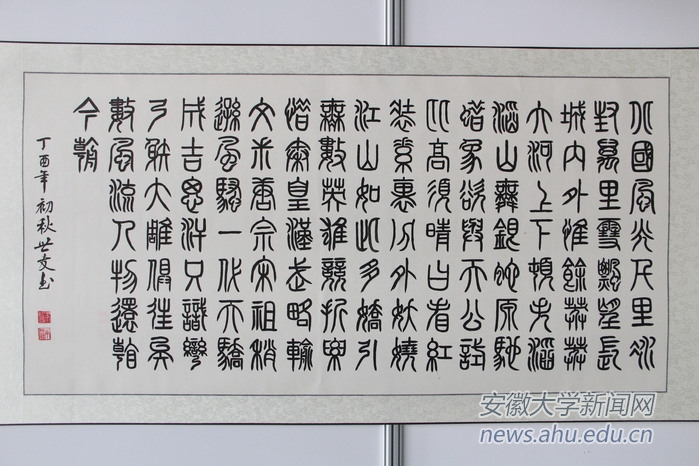 北國風光千里冰
封萬里雪飄望長
城內外惟餘莽莽
大河上下頓失滔
滔山舞銀蛇原馳
蠟象欲與天公試
比高須晴日看紅
裝素裹分外妖嬈
江山如此多嬌引
無數英雄競折腰
惜秦皇漢武略輸
文采唐宗宋祖稍
遜風騷一代天驕
成吉思汗只識彎
弓射大雕俱往矣
數風流人物還看
今朝
丁酉年初秋世文书
安徽大学新闻网
news.ahu.edu.cn